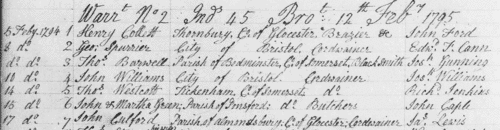 Warrt. No 2 Ind 45 Brot. 12th Feby 1795
5 Feby. 1794 1 Henry Collett Thornbury, C. of Glocester Brazier & John Ford
8 do. 2 Geo. Spurrier City of Bristol Cordwainer Edwd. T. Cann
do do. 3 Thos. Barwell Parish of Bedminster, C. of Somerset, Black Smith Jos. Gunning
10 do. 4 John Williams City of Bristol. Cordwainer Jos. Williams
14 do 5 Thos. Westcott Tickenham, C. of Somerset, do Richd. Jenkins
15 do 6 John & Martha Green; Parish of do. Butchers John Caple
17 do, 7 John Parish of almondsbury. C. of Glocester: Cordwainer Jas. Lewis